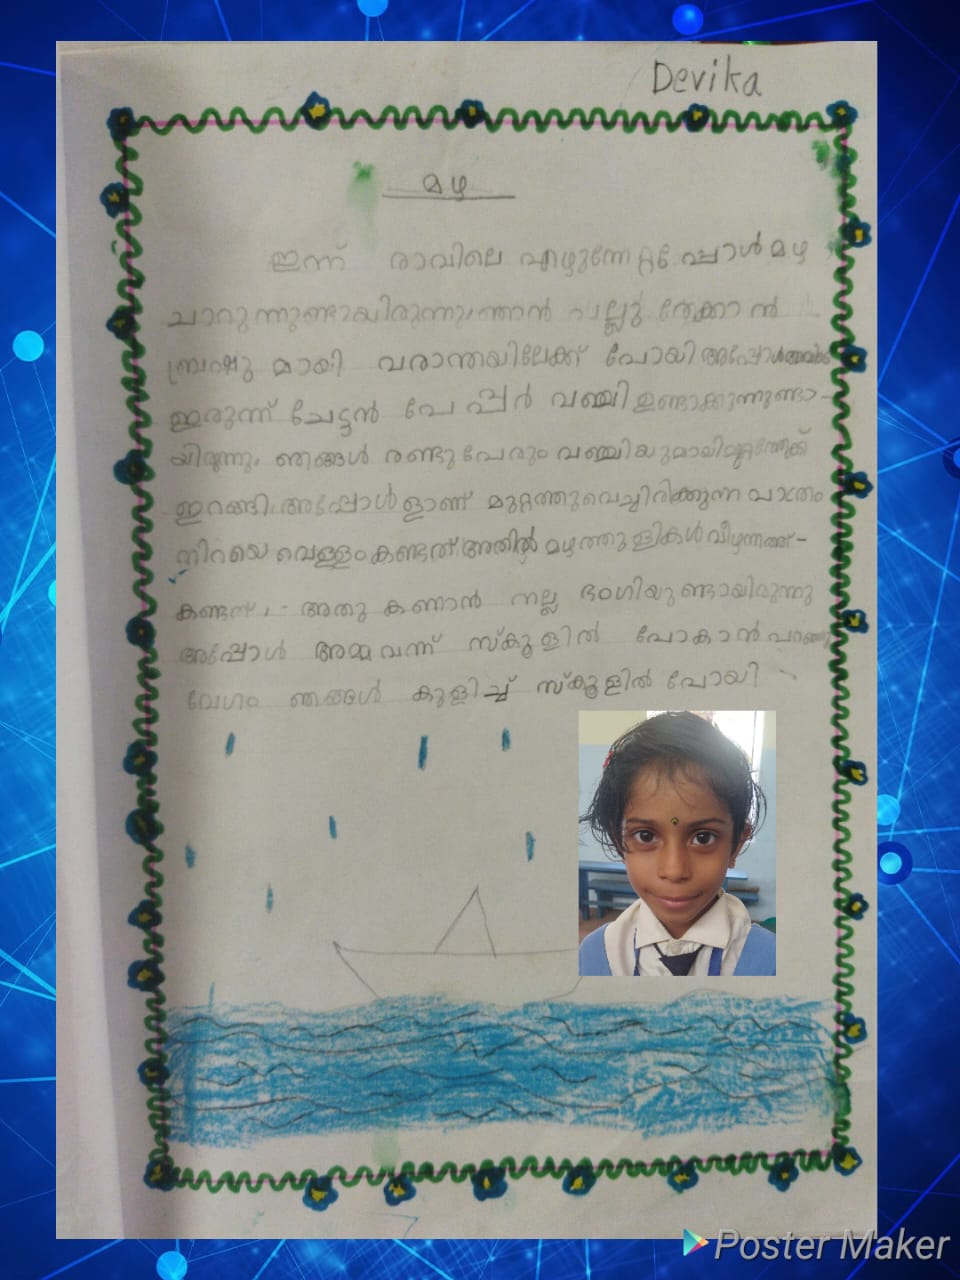 Devika
മഴ
ഇന്ന് രാവിലെ എഴുന്നേറ്റപ്പോൾ മഴ
ചാറുന്നുണ്ടായിരുന്നു ഞാൻ പല്ലു തേക്കാൻ
ബ്രഷു മായി വരാന്തയിലേക്ക് പോയി അപ്പോൾ
ഇരുന്ന് ചേട്ടൻ പേപ്പർ വഞ്ചി ഉണ്ടാക്കുന്നുണ്ടാ-
യിരുന്നു. ഞങ്ങൾ രണ്ടു പേരും വഞ്ചിയുമായി
ഇറങ്ങി അപ്പോൾ ളാണ് മുറ്റത്തു വെച്ചിരിക്കുന്ന പാത്രം
നിറയെ വെള്ളം കണ്ടത് അതിൽ മഴത്തു ളികൾ
കണ്ടത് . - അതു കണാൻ നല്ല ഭംഗിയുണ്ടായിരുന്നു
അപ്പോൾ അമ്മ വന്ന് സ്കൂളിൽ പോകാൻ പറഞ്ഞു
വേഗം ഞങ്ങൾ കുളിച്ച് സ്കൂളിൽ പോയി
Poster Maker